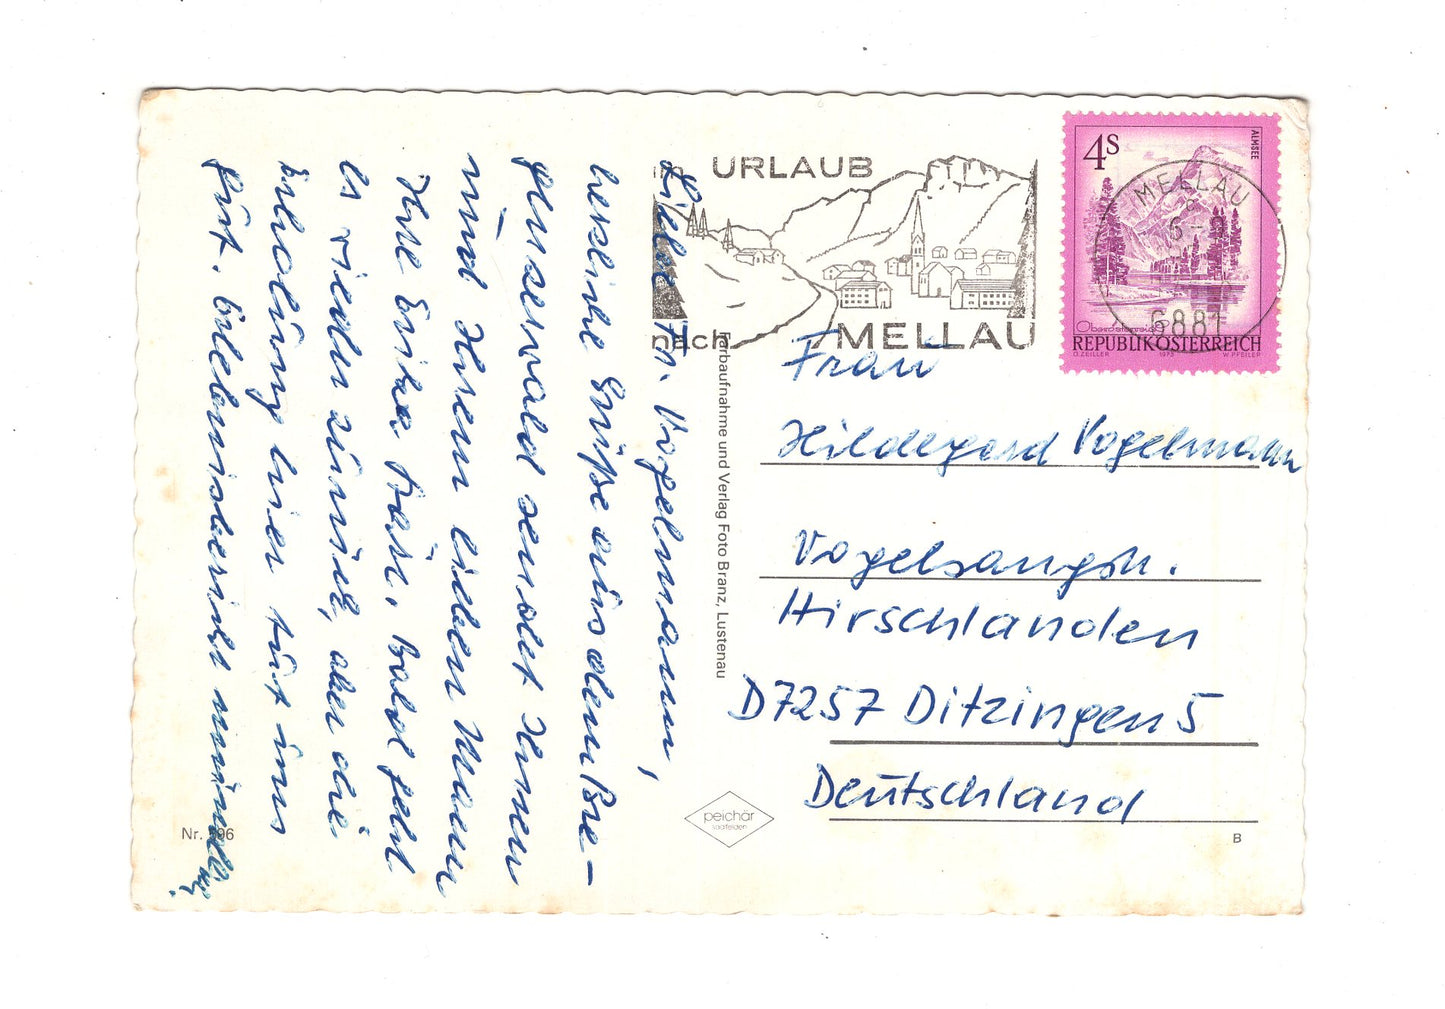 Liebe Fr. Vogelmann,
herzliche Grüße aus dem Bre-
genzerwald sendet Ihnen
und Ihrem lieben Mann
Ihre Erika Bald geht
es wieder zurück, aber die
Erholung hier tut uns
gut. Erlebnisbericht mündl.
im URLAUB
nach MELLAU
4S
ALMSEE
Oberösterreich
REPUBLIK ÖSTERREICH
O. ZEILLER 1973 W. PFEILER
MELLAU
6881
Farbaufnahme und Verlag Foto Branz, Lustenau
Frau
Hildegard Vogelmann
Vogelsangstr.
Hirschlanden
D7257 Ditzingen 5
Deutschland
peichär
saalfelden
Nr. 96
B